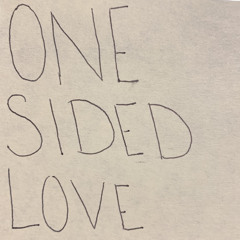 ONE
SIDED
LOVE